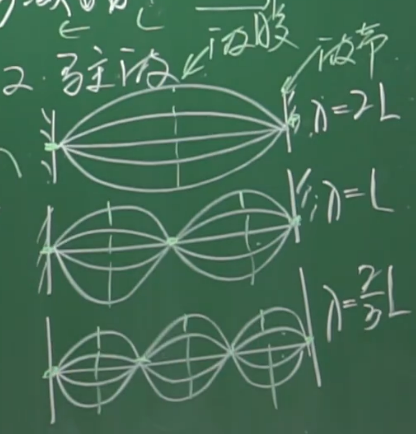 2. 驻波 波腹 波节
λ=2L
λ=L
λ=2/3L